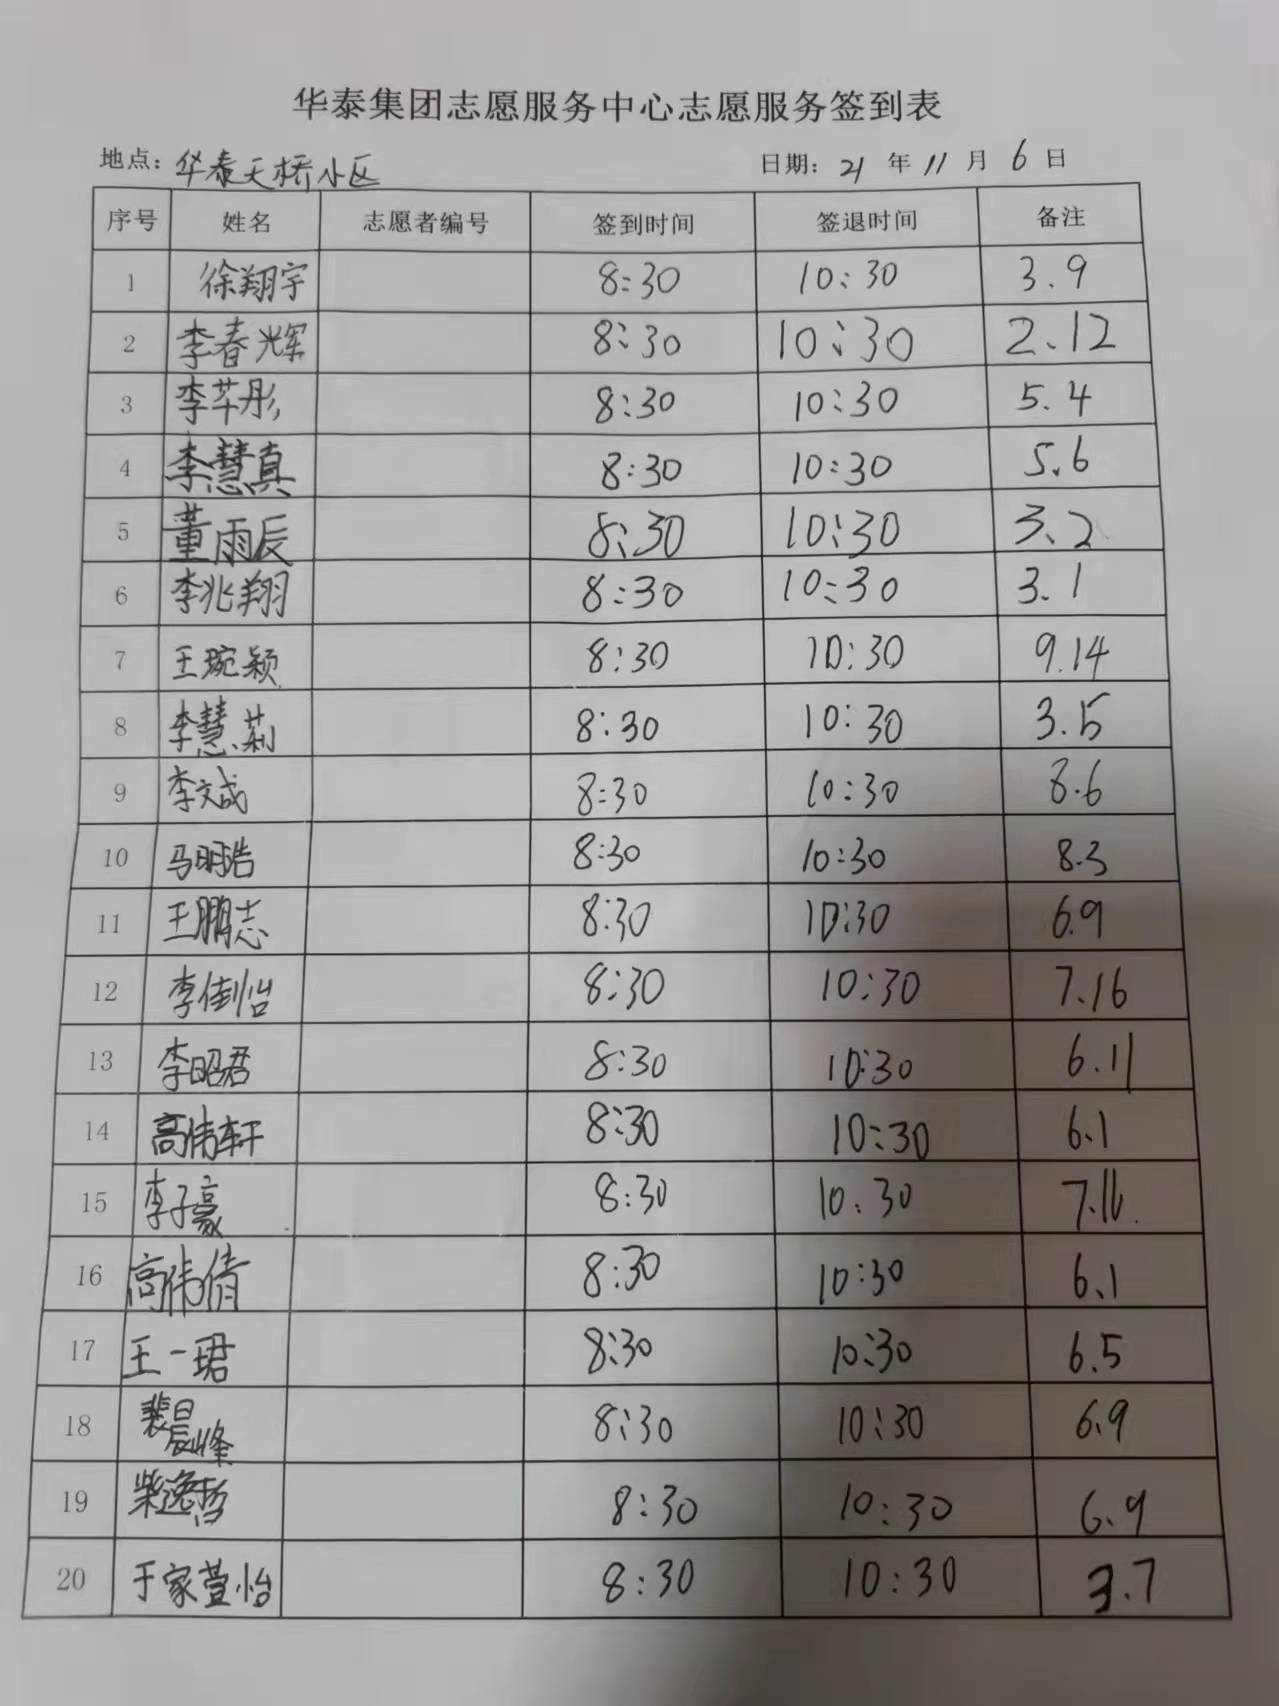 华泰集团志愿服务中心志愿服务签到表
地点：华泰天桥小区 日期：21年11月6日
序号 姓名 志愿者编号 签到时间 签退时间 备注
1 徐翔宇 8:30 10:30 3.9
2 李春辉 8:30 10:30 2.12
3 李芊彤 8:30 10:30 5.4
4 李慧真 8:30 10:30 5.6
5 董雨辰 8:30 10:30 3.2
6 李兆翔 8:30 10:30 3.1
7 王琬颖 8:30 10:30 9.14
8 李慧莉 8:30 10:30 3.5
9 李文成 8:30 10:30 8.6
10 马明浩 8:30 10:30 8.3
11 王鹏志 8:30 10:30 6.9
12 李佳怡 8:30 10:30 7.16
13 李昭君 8:30 10:30 6.11
14 高伟轩 8:30 10:30 6.1
15 李子豪 8:30 10:30
16 高伟倩 8:30 10:30 6.1
17 王一珺 8:30 10:30 6.5
18 裴晨峰 8:30 10:30 6.9
19 柴逸哲 8:30 10:30 6.9
20 于家萱怡 8:30 10:30 3.7